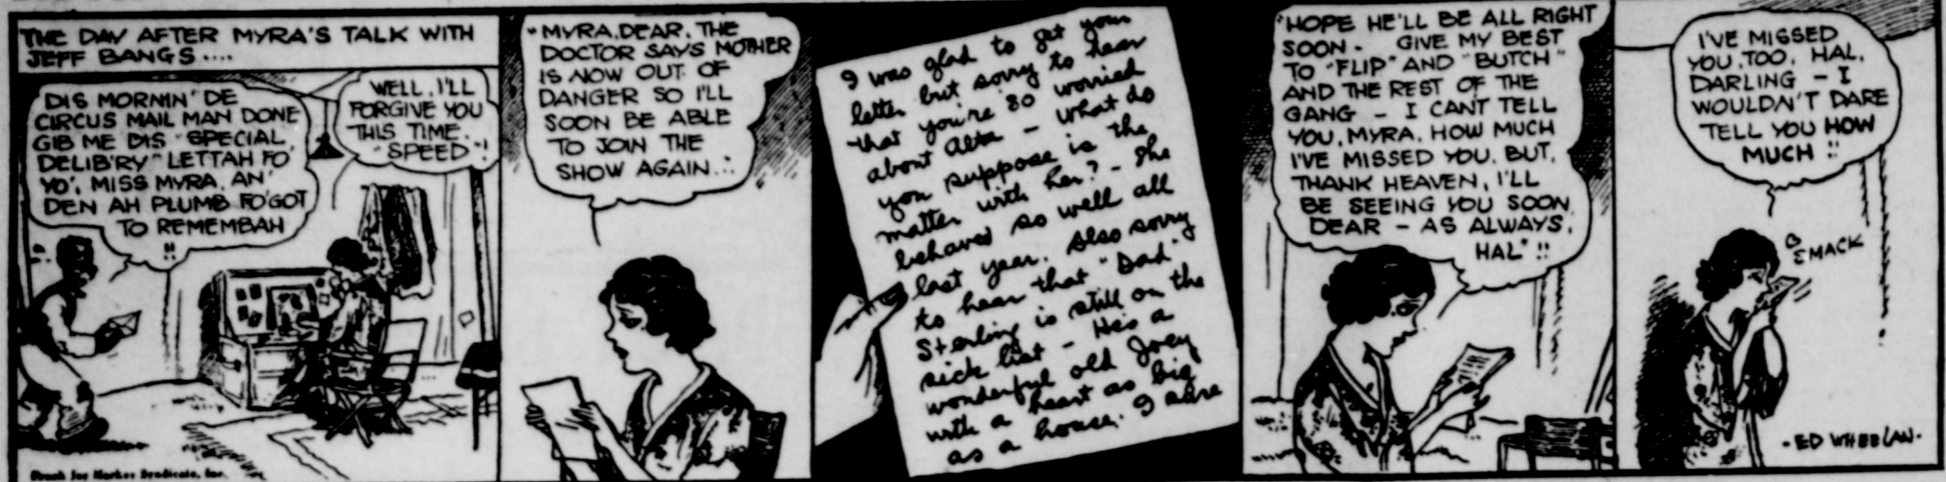 THE DAY AFTER MYRA'S TALK WITH
JEFF BANGS....
DIS MORNIN' DE
CIRCUS MAIL MAN DONE
GIB ME DIS "SPECIAL
DELIB'RY" LETTAH FO'
YO', MISS MYRA, AN'
DEN AH PLUMB FO'GOT
TO REMEMBAH
!!
WELL, I'LL
FORGIVE YOU
THIS TIME,
"SPEED"!
Frank Jay Markey Syndicate, Inc.
"MYRA, DEAR, THE
DOCTOR SAYS MOTHER
IS NOW OUT OF
DANGER SO I'LL
SOON BE ABLE
TO JOIN THE
SHOW AGAIN...
I was glad to get your
letter but sorry to hear
that you're so worried
about Alta - what do
you suppose is the
matter with her? - She
behaved so well all
last year. Also sorry
to hear that "Dad"
Sterling is still on the
sick list - He's a
wonderful old Joey
with a heart as big
as a house. I sure
"HOPE HE'LL BE ALL RIGHT
SOON - GIVE MY BEST
TO "FLIP" AND "BUTCH"
AND THE REST OF THE
GANG - I CAN'T TELL
YOU, MYRA, HOW MUCH
I'VE MISSED YOU, BUT,
THANK HEAVEN, I'LL
BE SEEING YOU SOON,
DEAR - AS ALWAYS,
HAL" !!
I'VE MISSED
YOU, TOO, HAL,
DARLING - I
WOULDN'T DARE
TELL YOU HOW
MUCH !!
SMACK
-ED WHEELAN-